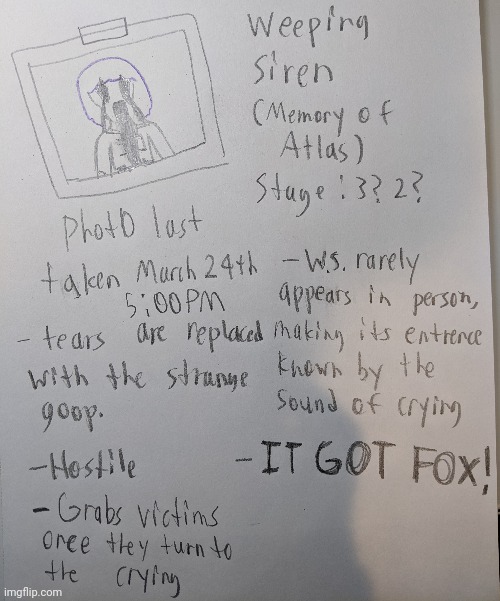 Weeping
Siren
(Memory of
Atlas)
Stage: 3? 2?
Photo last
taken March 24th
5:00PM
- tears are replaced
with the strange
goop.
- Hostile
- Grabs victims
once they turn to
the crying
- W.S. rarely
appears in person,
making its entrence
known by the
sound of crying
- IT GOT FOX!
imgflip.com